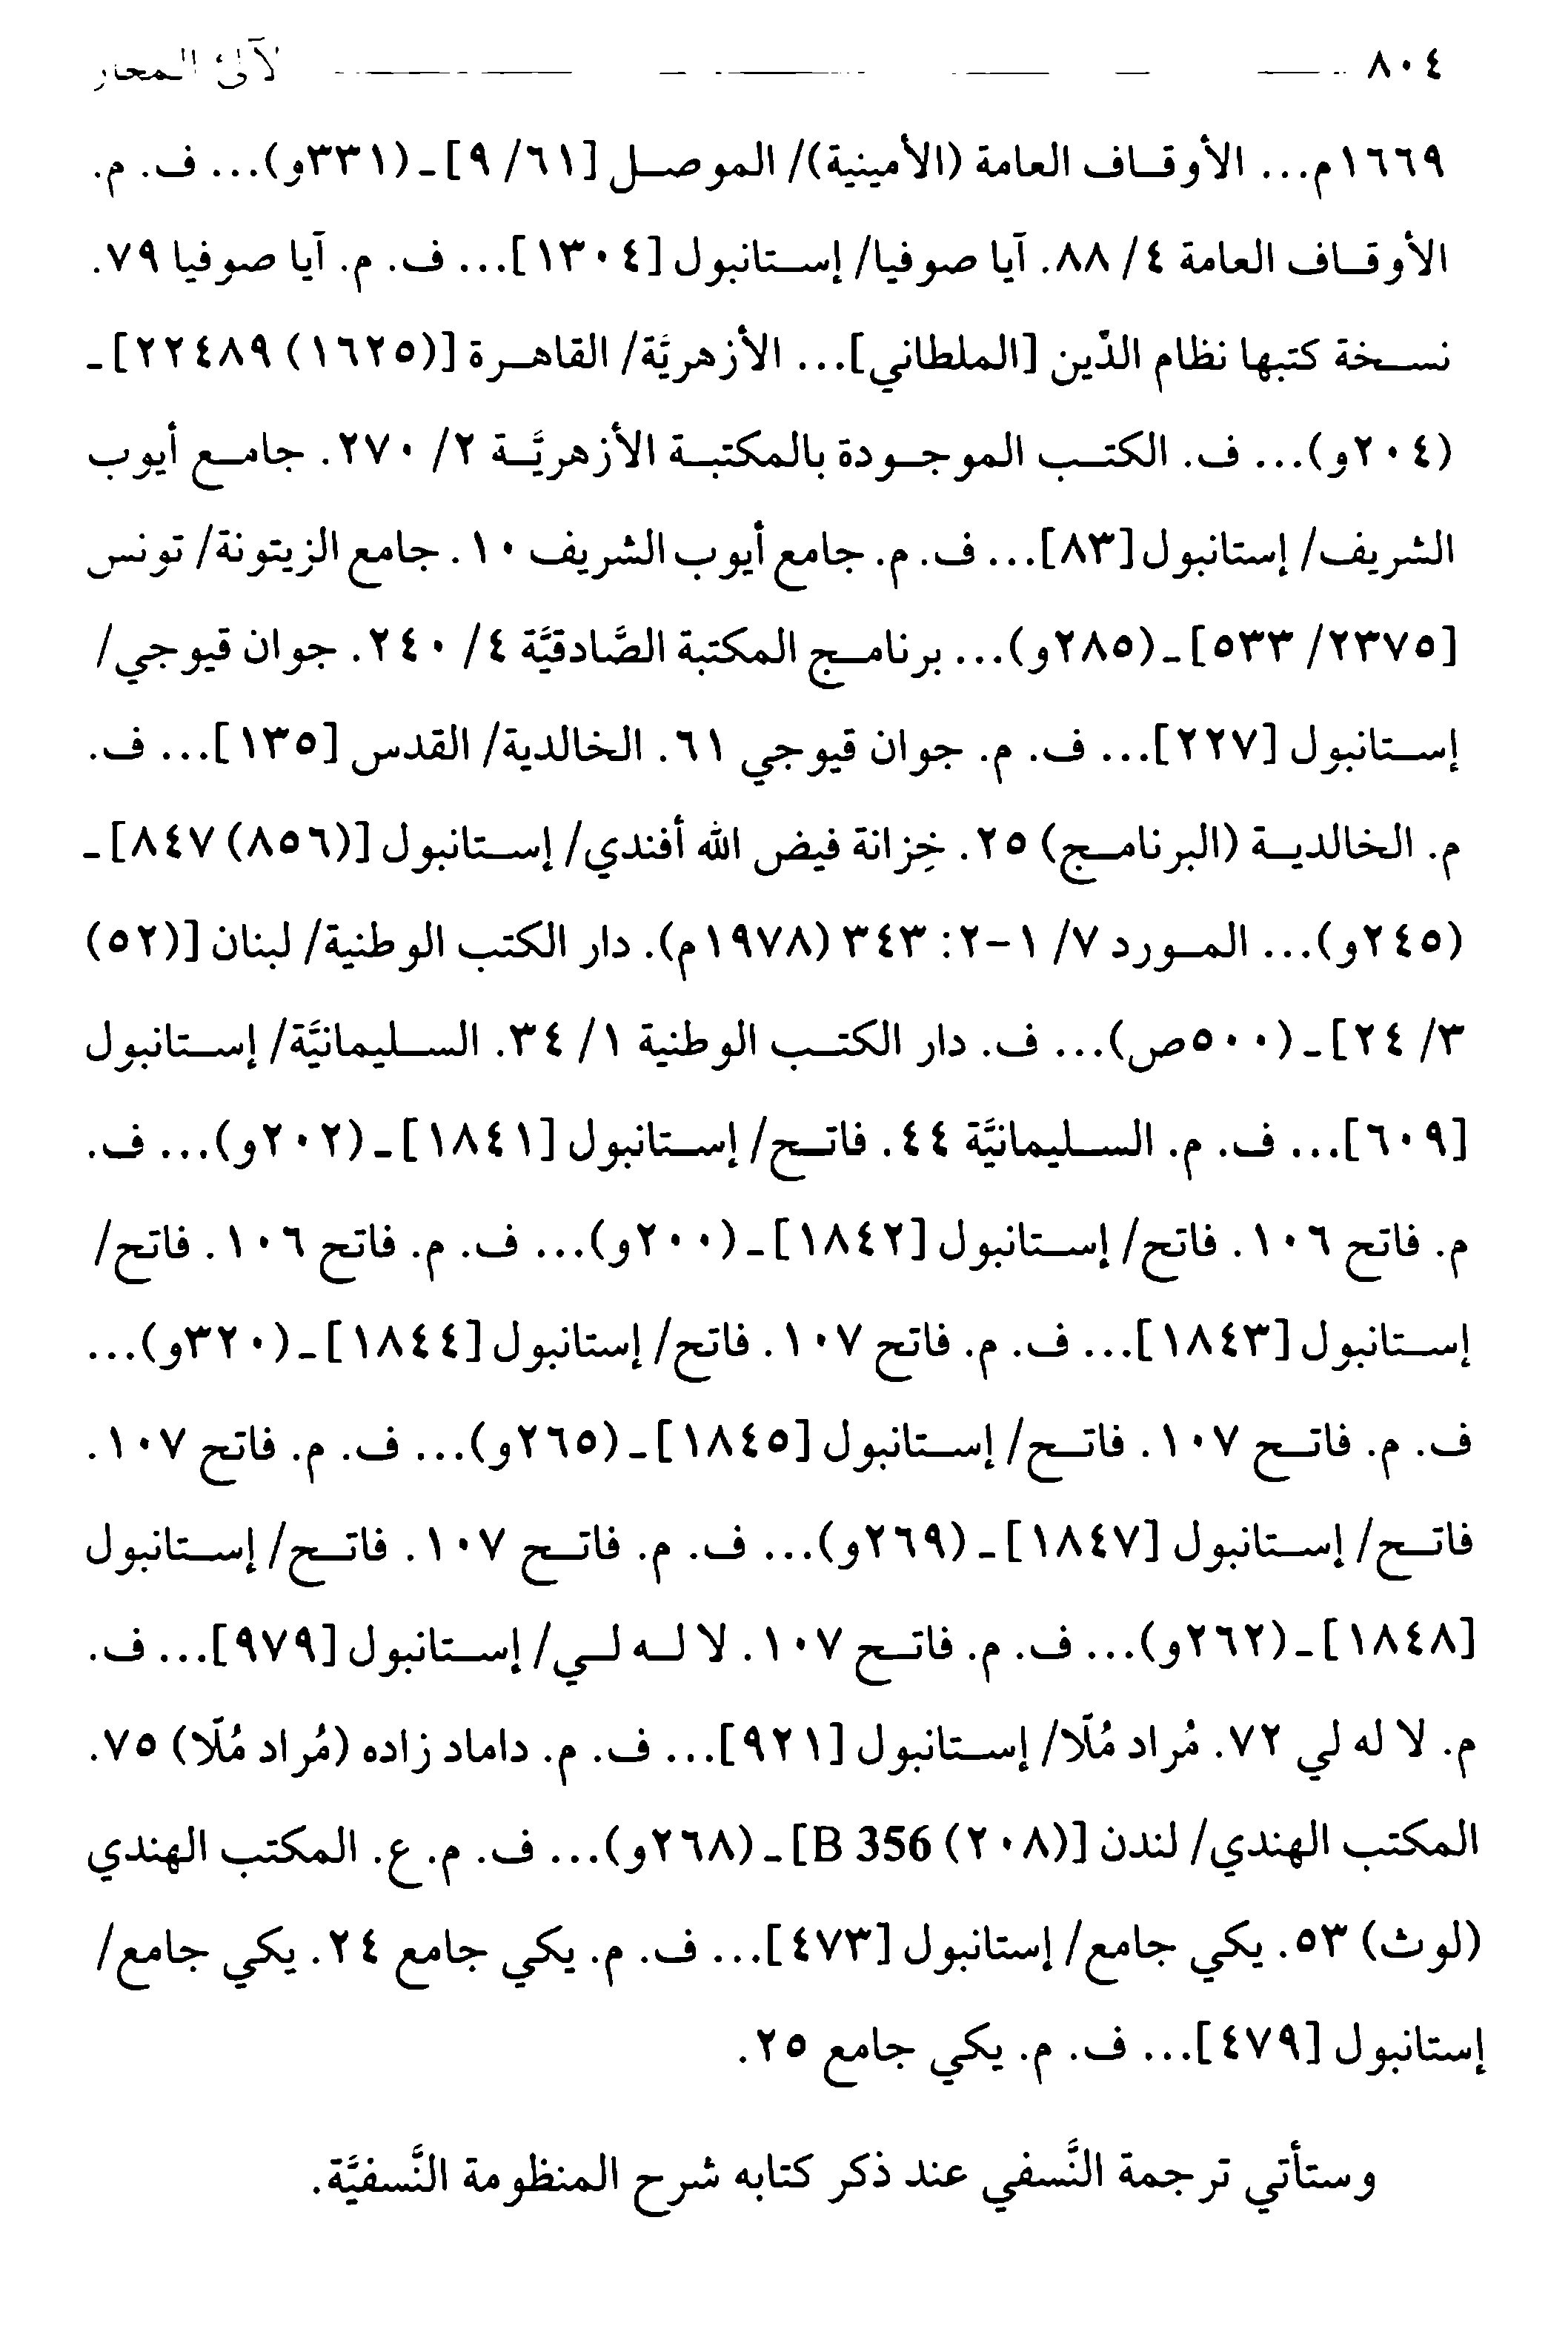 ٨٠٤ لآلئ المحار
١٦٦٩م... الأوقاف العامة (الأمينية)/ الموصل [٦١/ ٩] ـ (٣٣١و)... ف. م.
الأوقاف العامة ٤/ ٨٨. آيا صوفيا/ إستانبول [١٣٠٤]... ف. م. آيا صوفيا ٧٩.
نسخة كتبها نظام الدّين [الملطاني]... الأزهريَّة/ القاهرة [(١٦٢٥) ٢٢٤٨٩] ـ
(٢٠٤و)... ف. الكتب الموجودة بالمكتبة الأزهريَّة ٢/ ٢٧٠. جامع أيوب
الشريف/ إستانبول [٨٣]... ف. م. جامع أيوب الشريف ١٠. جامع الزيتونة/ تونس
[٢٣٧٥/ ٥٣٣] ـ (٢٨٥و)... برنامج المكتبة الصَّادقيَّة ٤/ ٢٤٠. جوان قيوجي/
إستانبول [٢٢٧]... ف. م. جوان قيوجي ٦١. الخالدية/ القدس [١٣٥]... ف.
م. الخالدية (البرنامج) ٢٥. خِزانة فيض الله أفندي/ إستانبول [(٨٥٦) ٨٤٧] ـ
(٢٤٥و)... المورد ٧/ ١-٢: ٣٤٣ (١٩٧٨م). دار الكتب الوطنية/ لبنان [(٥٢)
٣/ ٢٤] ـ (٥٠٠ص)... ف. دار الكتب الوطنية ١/ ٣٤. السليمانيَّة/ إستانبول
[٦٠٩]... ف. م. السليمانيَّة ٤٤. فاتح/ إستانبول [١٨٤١] ـ (٢٠٢و)... ف.
م. فاتح ١٠٦. فاتح/ إستانبول [١٨٤٢] ـ (٢٠٠و)... ف. م. فاتح ١٠٦. فاتح/
إستانبول [١٨٤٣]... ف. م. فاتح ١٠٧. فاتح/ إستانبول [١٨٤٤] ـ (٣٢٠و)...
ف. م. فاتح ١٠٧. فاتح/ إستانبول [١٨٤٥] ـ (٢٦٥و)... ف. م. فاتح ١٠٧.
فاتح/ إستانبول [١٨٤٧] ـ (٢٦٩و)... ف. م. فاتح ١٠٧. فاتح/ إستانبول
[١٨٤٨] ـ (٢٦٢و)... ف. م. فاتح ١٠٧. لا له لي/ إستانبول [٩٧٩]... ف.
م. لا له لي ٧٢. مُراد مُلّا/ إستانبول [٩٢١]... ف. م. داماد زاده (مُراد مُلّا) ٧٥.
المكتب الهندي/ لندن [(٢٠٨) B 356] ـ (٢٦٨و)... ف. م. ع. المكتب الهندي
(لوث) ٥٣. يكي جامع/ إستانبول [٤٧٣]... ف. م. يكي جامع ٢٤. يكي جامع/
إستانبول [٤٧٩]... ف. م. يكي جامع ٢٥.
وستأتي ترجمة النَّسفي عند ذكر كتابه شرح المنظومة النَّسفيَّة.